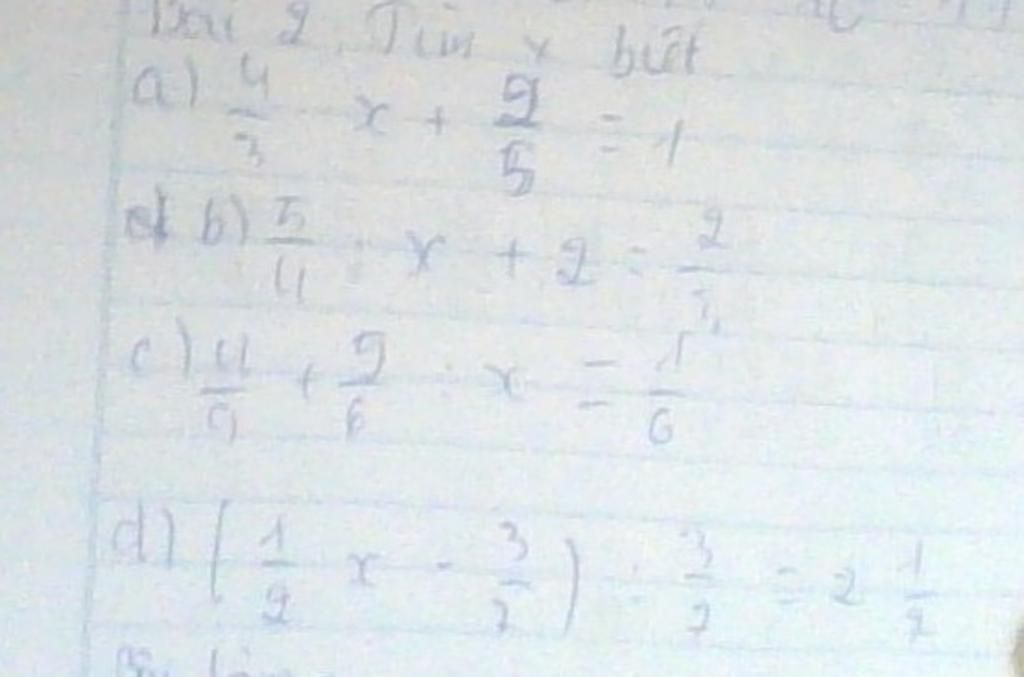 Bài 2. Tìm x biết
a) 4/3 x + 2/5 = 1
b) 5/4 · x + 2 = 2/3
c) 4/9 + 5/6 : x = 1/6
d) (1/2 x - 3/7) : 3/7 = 2 1/2